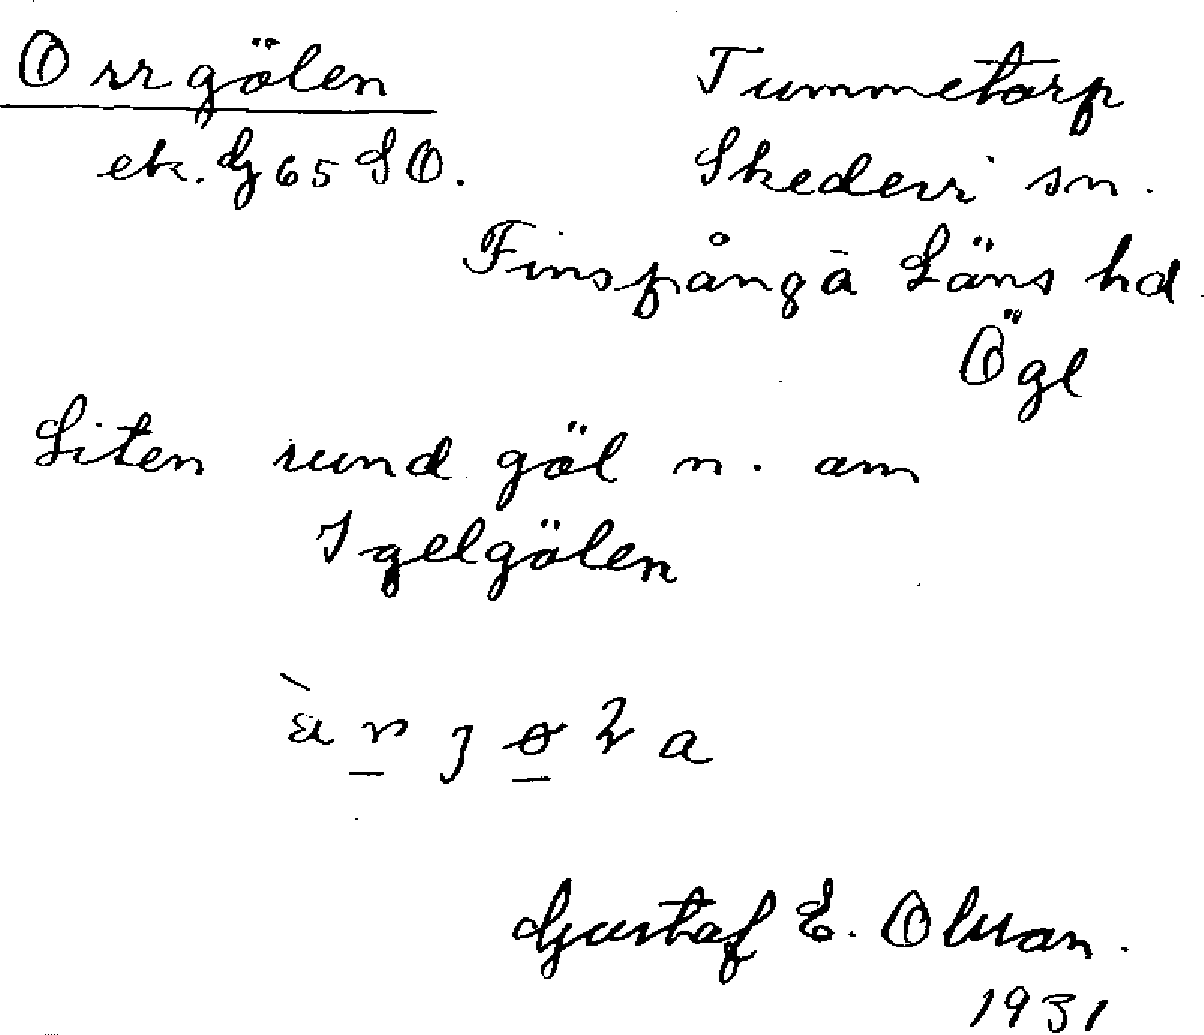 Orrgölen
ek. G65SO.
Tummetorp
Skedevi sn.
Finspånga Läns hd.
Ögl
Liten rund göl n. om
Igelgölen
Gustaf E. Olsson.
1931